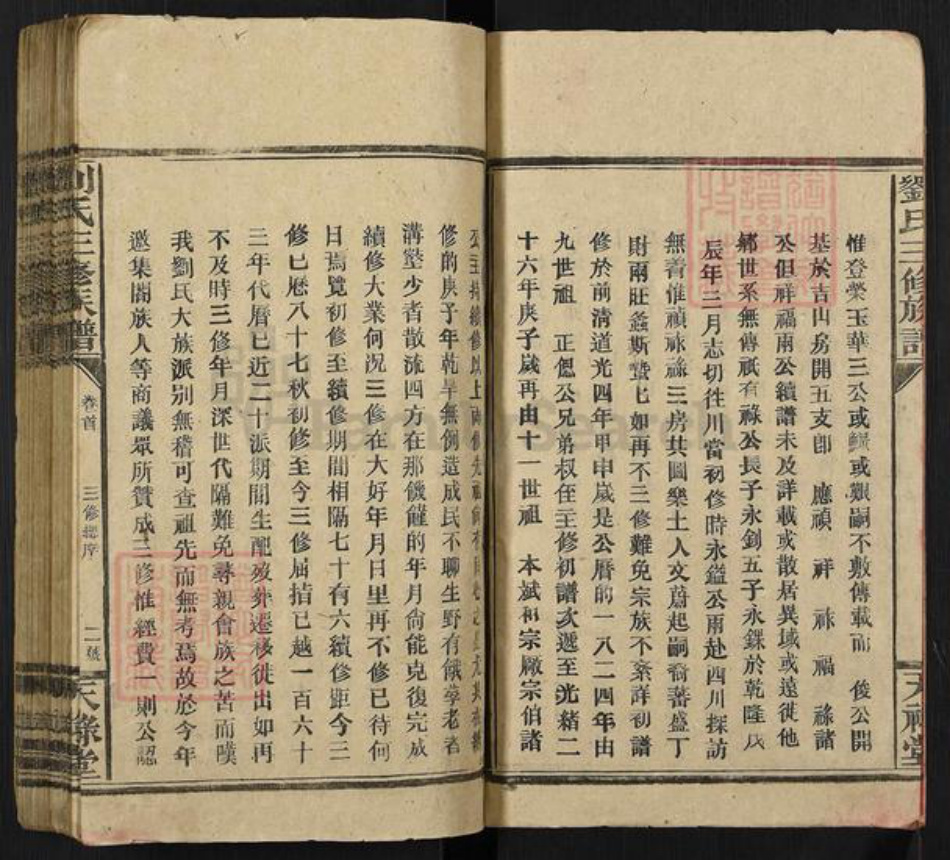 劉氏三修族譜
天祿堂
惟登榮玉華三公或鰥或艱嗣不敷傳載而 俊公開
基於吉山房開五支卽 應禎 祥 祿 福 祿諸
公但祥福兩公續譜未及詳載或散居異域或遠徙他
鄉世系無傳祇有祿公長子永釗五子永錁於乾隆戊
辰年三月志切往川當初修時永鎰公兩赴四川探訪
無着惟禎祿祿三房共圖樂土人文蔚起嗣裔蕃盛丁
財兩旺螽斯蟄七如再不三修難免宗族不紊詳初譜
修於前清道光四年甲申歲是公曆的一八二四年由
九世祖 正偲公兄弟叔侄主修初譜次遞至光緒二
十六年庚子歲再由十一世祖 本斌和宗廠宗伯諸
公主持續修以上兩修先
修的庚子年乾旱無例造成民不聊生野有餓莩老者
溝壑少者散流四方在那饑饉的年月尙能克復完成
續修大業何況三修在大好年月日里再不修已待何
日焉覽初修至續修期間相隔七十有六續修距今三
修已歷八十七秋初修至今三修屈指已越一百六十
三年代曆已近二十派期間生配歿外遷移徙出如再
不及時三修年月深世代隔難免尋親會族之苦而嘆
我劉氏大族派别無稽可查祖先而無考焉故於今年
邀集闔族人等商議眾所贊成三修惟經費一則公認
劉氏三修族譜
卷首
三修總序
二號
天祿堂